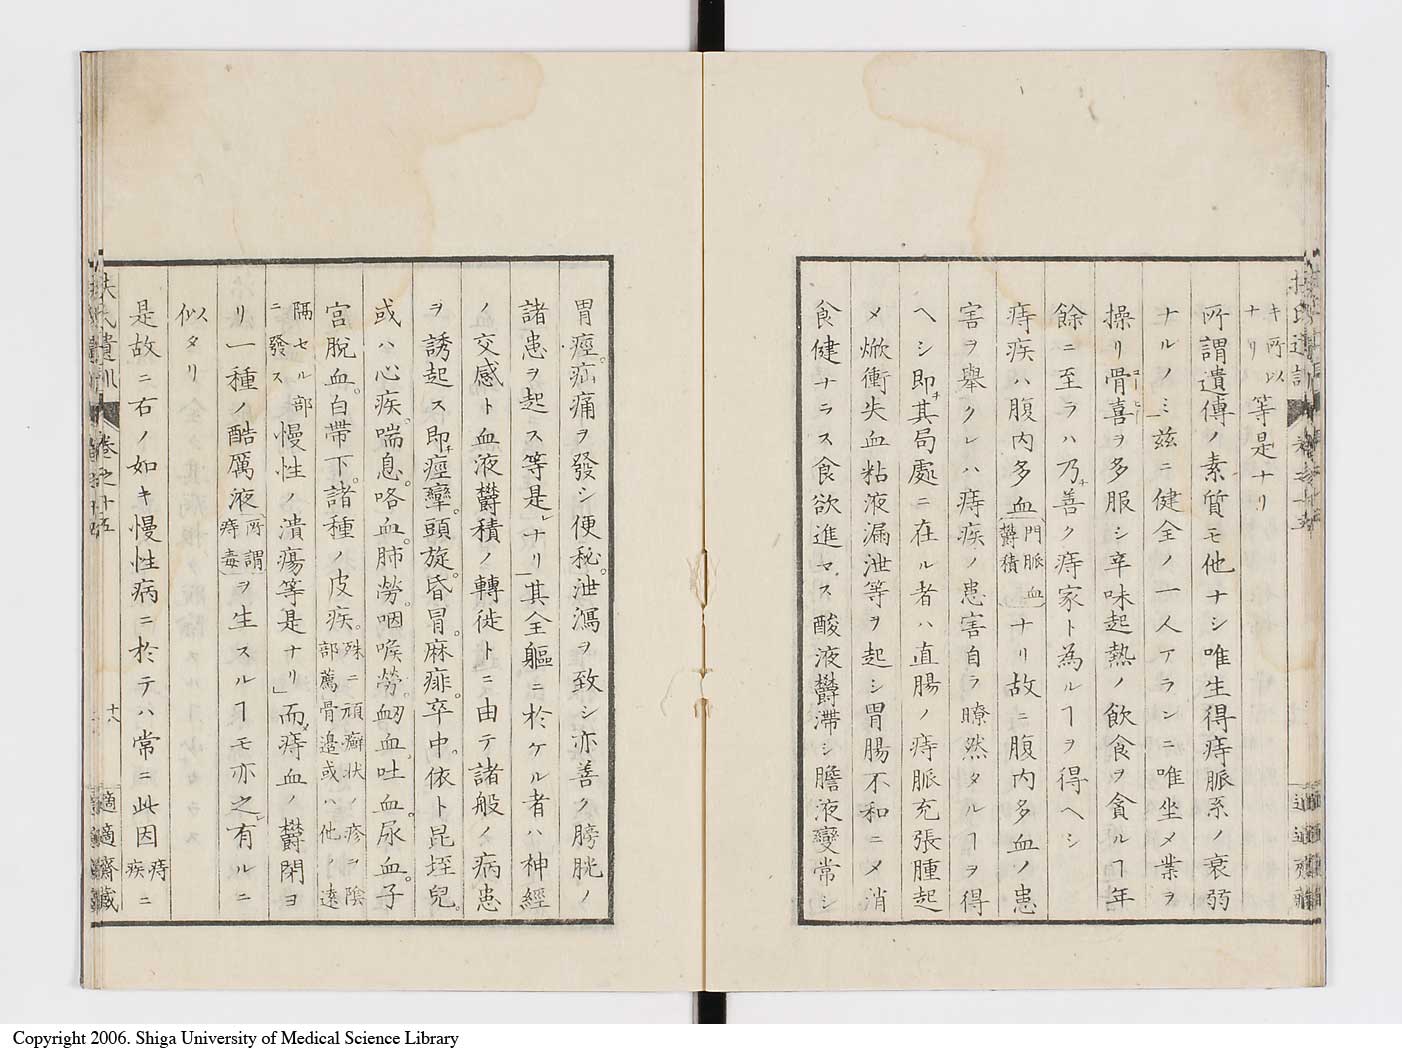 キ所以
ナリ 等是ナリ
所謂遺傳ノ素質モ他ナシ唯生得痔脈系ノ衰弱
ナルノミ」茲ニ健全ノ一人アランニ唯坐メ業ヲ
操リ骨喜ヲ多服シ辛味起熱ノ飲食ヲ貪ルヿ年
餘ニ至ラハ乃チ善ク痔家ト為ルヿヲ得ヘシ
痔疾ハ腹内多血(門脈血欝積)ナリ故ニ腹内多血ノ患
害ヲ舉クレハ痔疾ノ患害自ラ瞭然タルヿヲ得
ヘシ即チ其局處ニ在ル者ハ直腸ノ痔脈充張腫起
メ焮衝失血粘液漏泄等ヲ起シ胃腸不和ニメ消
食健ナラス食欲進マス酸液欝滯シ膽液變常シ
胃痙。疝痛ヲ發シ便秘。泄瀉ヲ致シ亦善ク膀胱ノ
諸患ヲ起ス等是レナリ」其全軀ニ於ケル者ハ神經
ノ交感ト血液欝積ノ轉徙トニ由テ諸般ノ病患
ヲ誘起ス即チ痙攣。頭旋。昏冒。麻痱。卒中。依卜昆垤兒。
或ハ心疾。喘息。咯血。肺勞。咽喉勞。衂血。吐血。尿血。子
宮脫血。白帶下。諸種ノ皮疾。殊ニ頑癬状ノ疹ヲ陰部薦骨邊或ハ他ノ遠
隔セル部ニ發ス 慢性ノ潰瘍等是ナリ」而メ痔血ノ欝閉ヨ
リ一種ノ酷厲液(所謂痔毒)ヲ生スルヿモ亦之レ有ルニ
似タリ
是故ニ右ノ如キ慢性病ニ於テハ常ニ此因痔疾ニ
扶氏遺訓 卷之十五
十八
適適齋藏
Copyright 2006. Shiga University of Medical Science Library